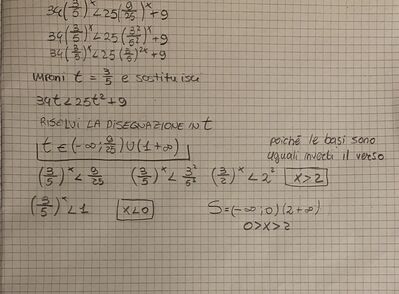 34(3/5)^x < 25(9/25)^x + 9
34(3/5)^x < 25(3²/5²)^x + 9
34(3/5)^x < 25(3/5)^2x + 9
IMPONI t = 3/5 e sostituisci
34t < 25t² + 9
RISOLVI LA DISEGNAZIONE IN t
t ∈ (-∞; 9/25) U (1 +∞)
poiché le basi sono
uguali inverti il verso
(3/5)^x < 9/25 (3/5)^x < 3²/5² (3/2)^x < 2² x>2
(3/5)^x < 1 x<0 S = (-∞; 0) (2 +∞)
0>x>2